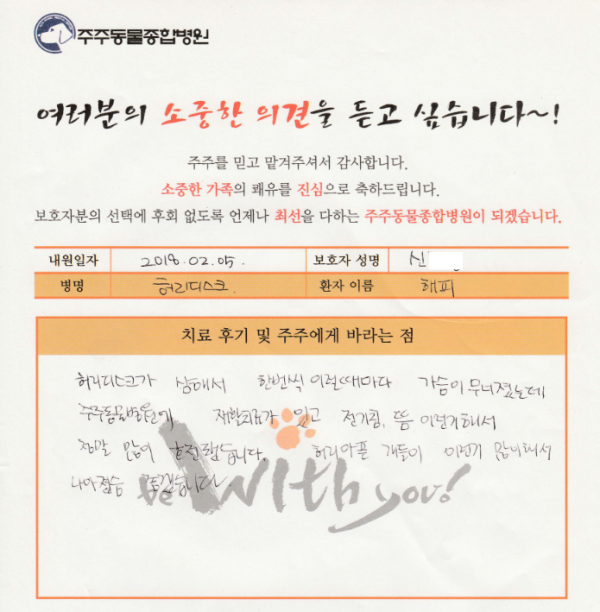 주주동물종합병원
여러분의 소중한 의견을 듣고 싶습니다~!
주주를 믿고 맡겨주셔서 감사합니다.
소중한 가족의 쾌유를 진심으로 축하드립니다.
보호자분의 선택에 후회 없도록 언제나 최선을 다하는 주주동물종합병원이 되겠습니다.
내원일자 2018.02.05. 보호자 성명 신
병명 허리디스크. 환자 이름 해피
치료 후기 및 주주에게 바라는 점
허리디스크가 심해서 한번씩 이럴때마다 가슴이 무너졌는데
주주동물병원에 재활치료가 있고 전기침, 뜸 이런거해서
정말 많이 호전됐습니다. 허리아픈 개들이 이런거 많이해서
나아졌음 좋겠습니다
be With you!